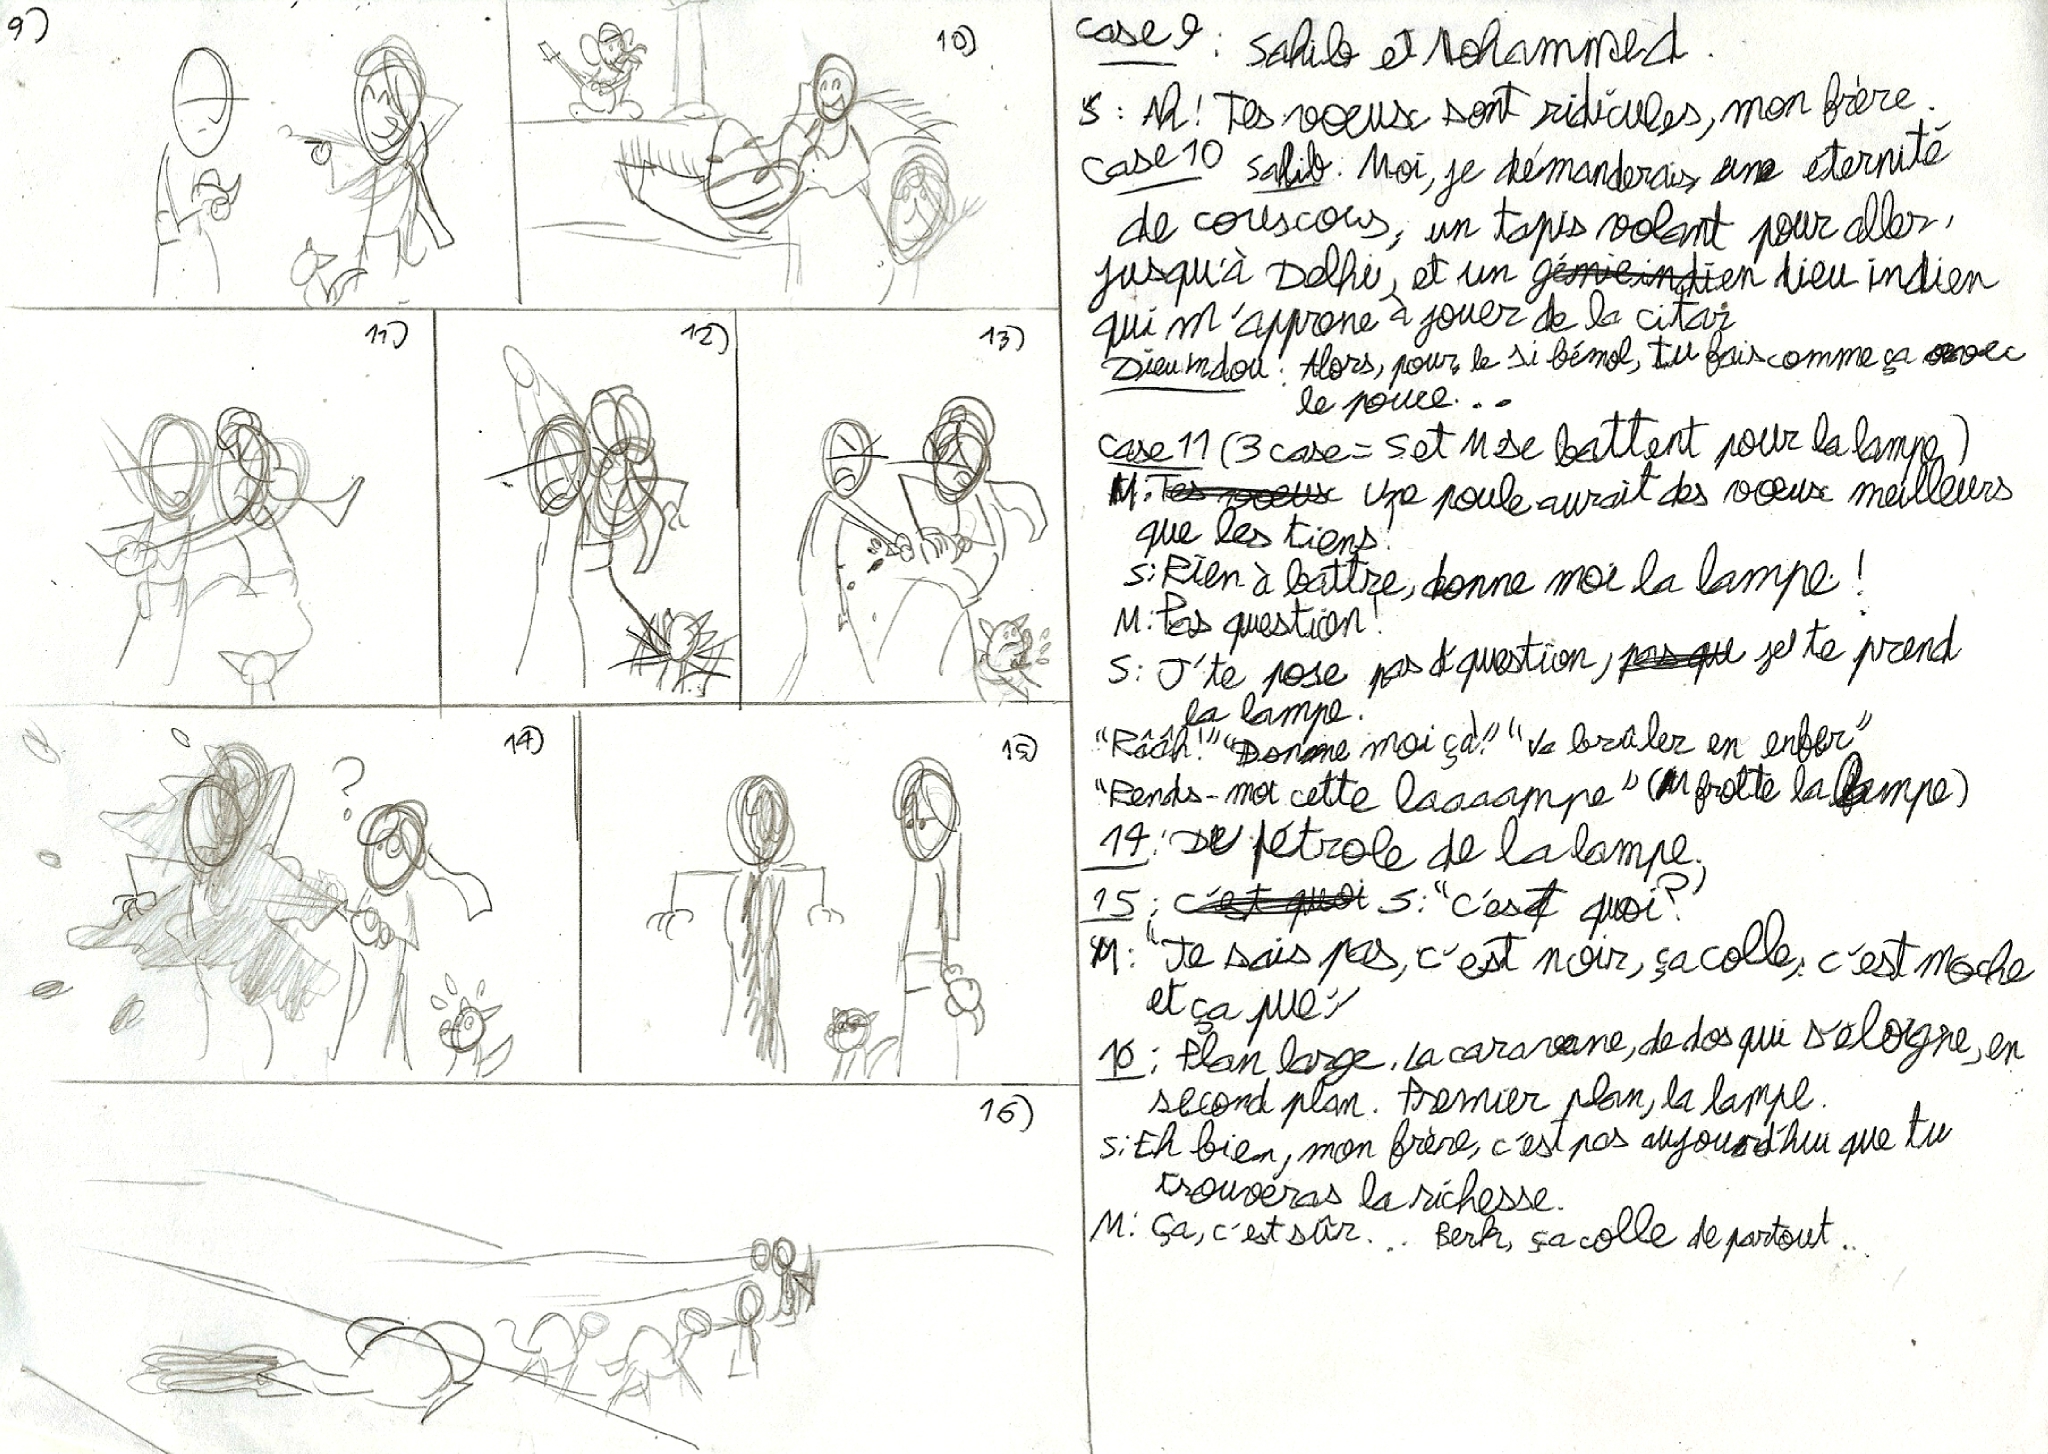 9)
10)
11)
12)
13)
14)
?
15)
16)
case 9 : Sahib et Mohammed.
S : Ah ! Tes voeux sont ridicules, mon frère.
case 10 Sahib : Moi, je démanderais une éternité
de couscous, un tapis volant pour aller
jusqu'à Delhi, et un génie indien dieu indien
qui m'apprene à jouer de la citar
Dieu indou : Alors, pour le si bémol, tu fais comme ça avec
le pouce...
case 11 (3 case = S et M se battent pour la lampe)
M : Tes voeux Une poule aurait des voeux meilleurs
que les tiens !
S : Rien à battre, donne moi la lampe !
M : Pas question !
S : J'te pose pas d'question, pas que je te prend
la lampe.
"Rââh !" "Donne moi ça !" "Va brûler en enfer"
"Rends-moi cette laaaampe" (M frotte la lampe)
14 : Du pétrole de la lampe.
15 : c'est quoi S : "C'est quoi ?"
M : "Je sais pas, c'est noir, ça colle, c'est moche
et ça pue."
16 : Plan large. La caravane, de dos qui s'éloigne, en
second plan. Premier plan, la lampe.
S : Eh bien, mon frère, c'est pas aujourd'hui que tu
trouveras la richesse.
M : Ça, c'est sûr... Berk, ça colle de partout...